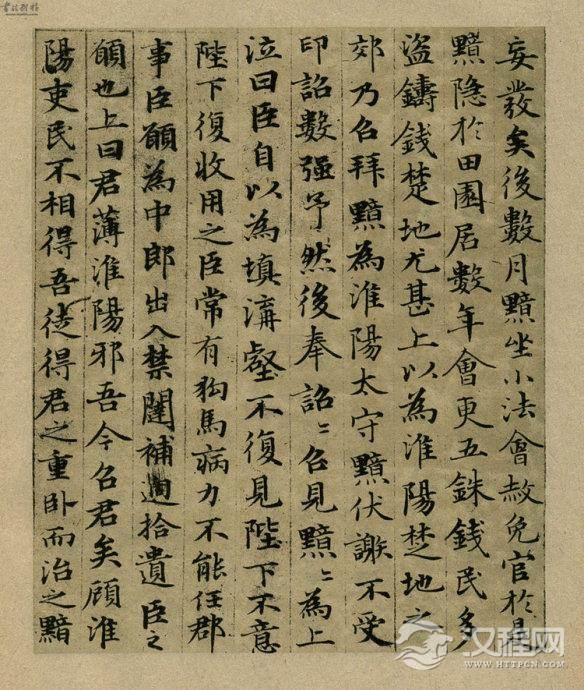 妄發矣後數月黯坐小法會赦免官於是
黯隱於田園居數年會更五銖錢民多
盜鑄錢楚地尤甚上以為淮陽楚地之
郊乃召拜黯為淮陽太守黯伏謝不受
印詔數强予然後奉詔〻召見黯〻為上
泣曰臣自以為填溝壑不復見陛下不意
陛下復收用之臣常有狗馬病力不能任郡
事臣願為中郎出入禁闥補過拾遺臣之
願也上曰君薄淮陽邪吾今召君矣顧淮
陽吏民不相得吾徒得君之重卧而治之黯
汉程网
WWW.HTTPCN.COM